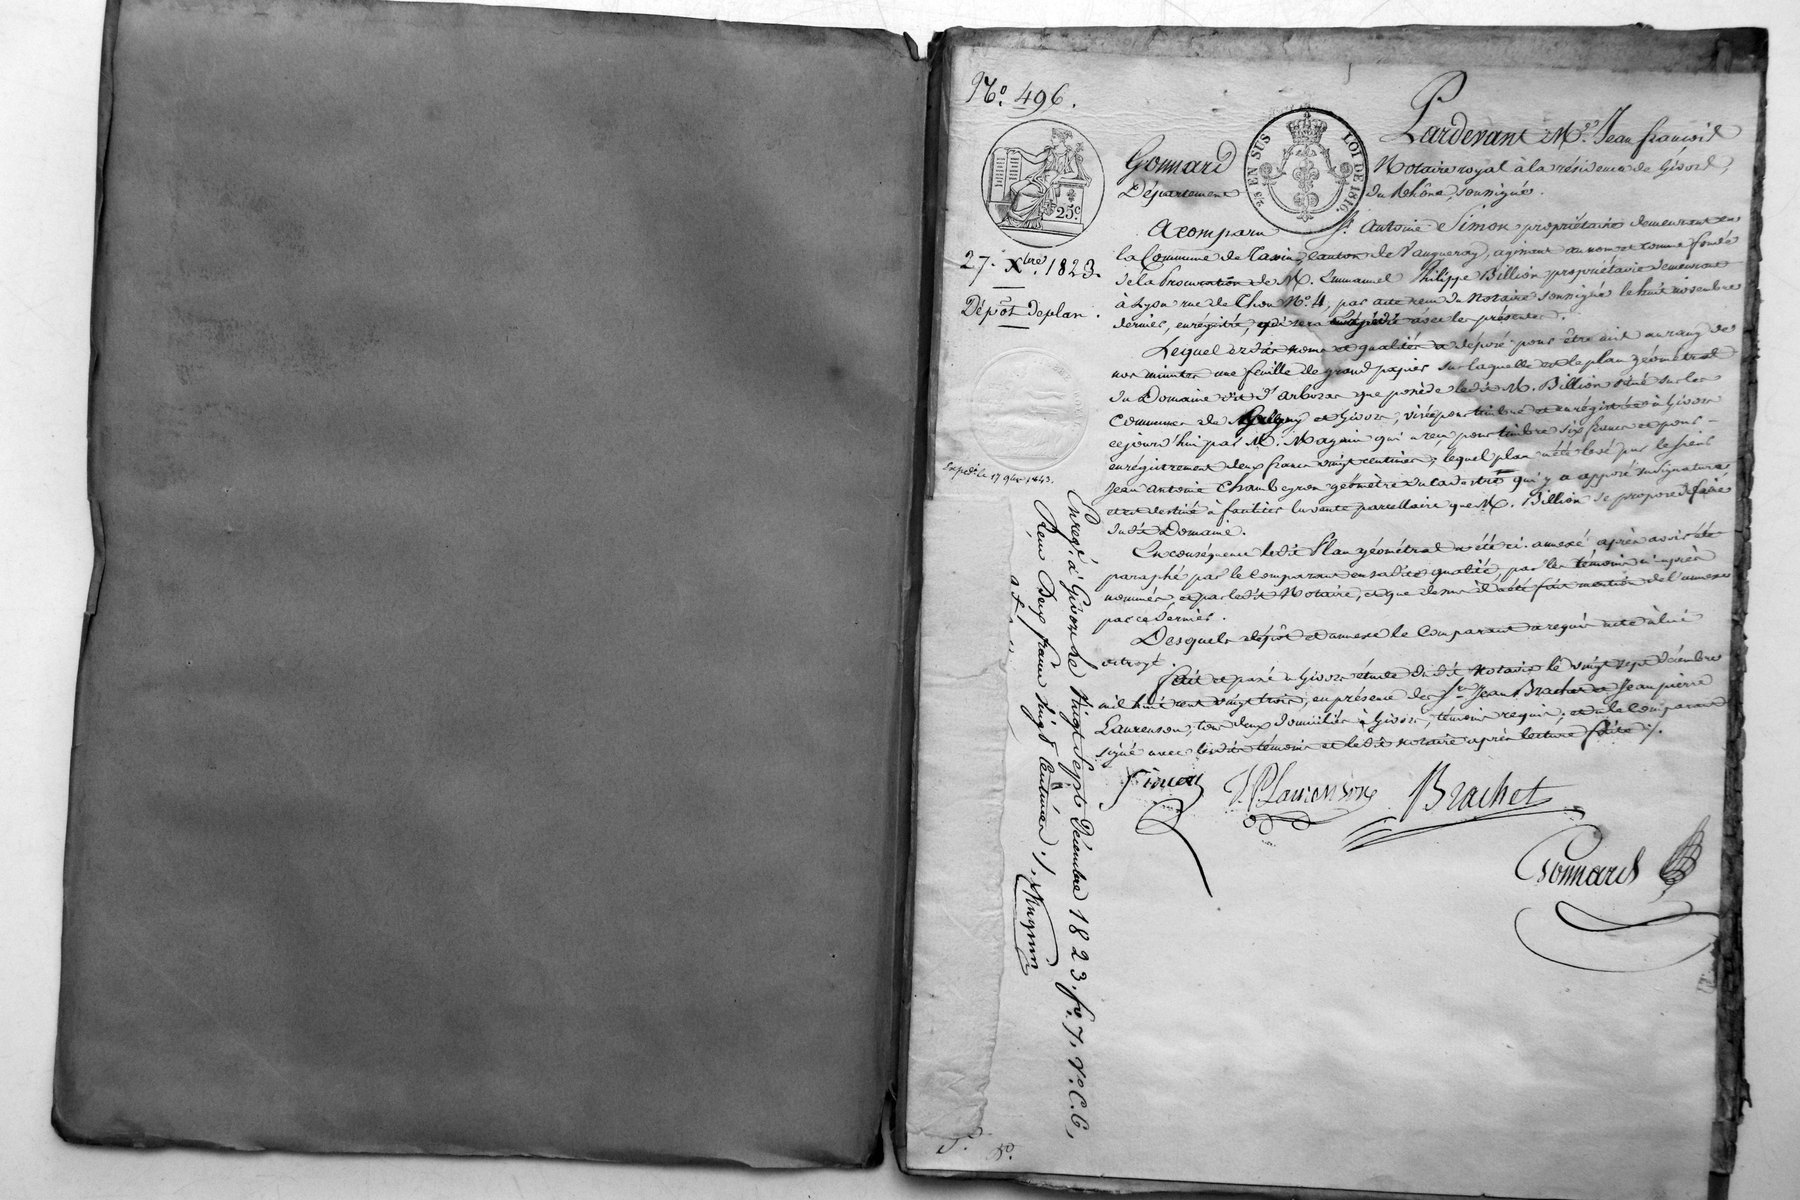 N.o 496.
25c
27. Xbre. 1823.
Dépôt de plan.
Expédié le 17 9bre 1843.
25 EN SUS LOI DE 1816.
Pardevant Me. Jean françois
Gonnard Notaire royal à la résidence de Givors,
Département du Rhône, soussigné.
A comparu Sr. Antoine Simon propriétaire demeurant en
la Commune de Tassin, canton de Vaugneray, agissant au nom et comme fondé
de la Procuration de M. Emmanuel Philippe Billion propriétaire demeurant
à Lyon rue de Thou No. 4, par acte reçu du Notaire soussigné le huit novembre
dernier, enregistré, qui sera expédié avec les présentes.
Lequel ezdits noms et qualités a déposé pour être mis au rang de
nos minutes une feuille de grand papier sur laquelle est le plan géométral
du Domaine dit d'arboras que possède ledit M. Billion situé sur les
communes de Grigny et Givors, visée pour timbre et enregistrée à Givors
cejourd'hui par M. Magnin qui a reçu pour timbre six francs et pour
enregistrement deux francs vingt centimes; lequel plan a été levé par le sieur
Jean Antoine Chambeyron géomètre du cadastre qui y a apposé sa signature
et est destiné à faciliter la vente parcellaire que M. Billion se propose de faire
dudit Domaine.
En conséquence ledit Plan géométral a été ci-annexé après avoir été
paraphé par le comparant en sadite qualité par les témoins ci-après
nommés et par ledit Notaire, et que dessus il a été fait mention de l'annexe
par ce dernier.
Desquels dépôt et annexe le Comparant a requis acte à lui
octroyé.
fait et passé à Givors étude dudit Notaire le vingt sept décembre
mil huit cent vingt trois, en présence des Srs Jean Brachet et Jean pierre
Laurenson, tous deux domiciliés à Givors, témoins requis; et a le Comparant
signé avec lesdits témoins et ledit notaire après lecture faite ./.
Simon J. P. Laurenson Brachet
Gonnard
Enregé. à Givors le Vingt Sept Décembre 1823. fo. 7. Vo. C. 6,
Reçu Deux francs Vingt Centimes ./. Magnin